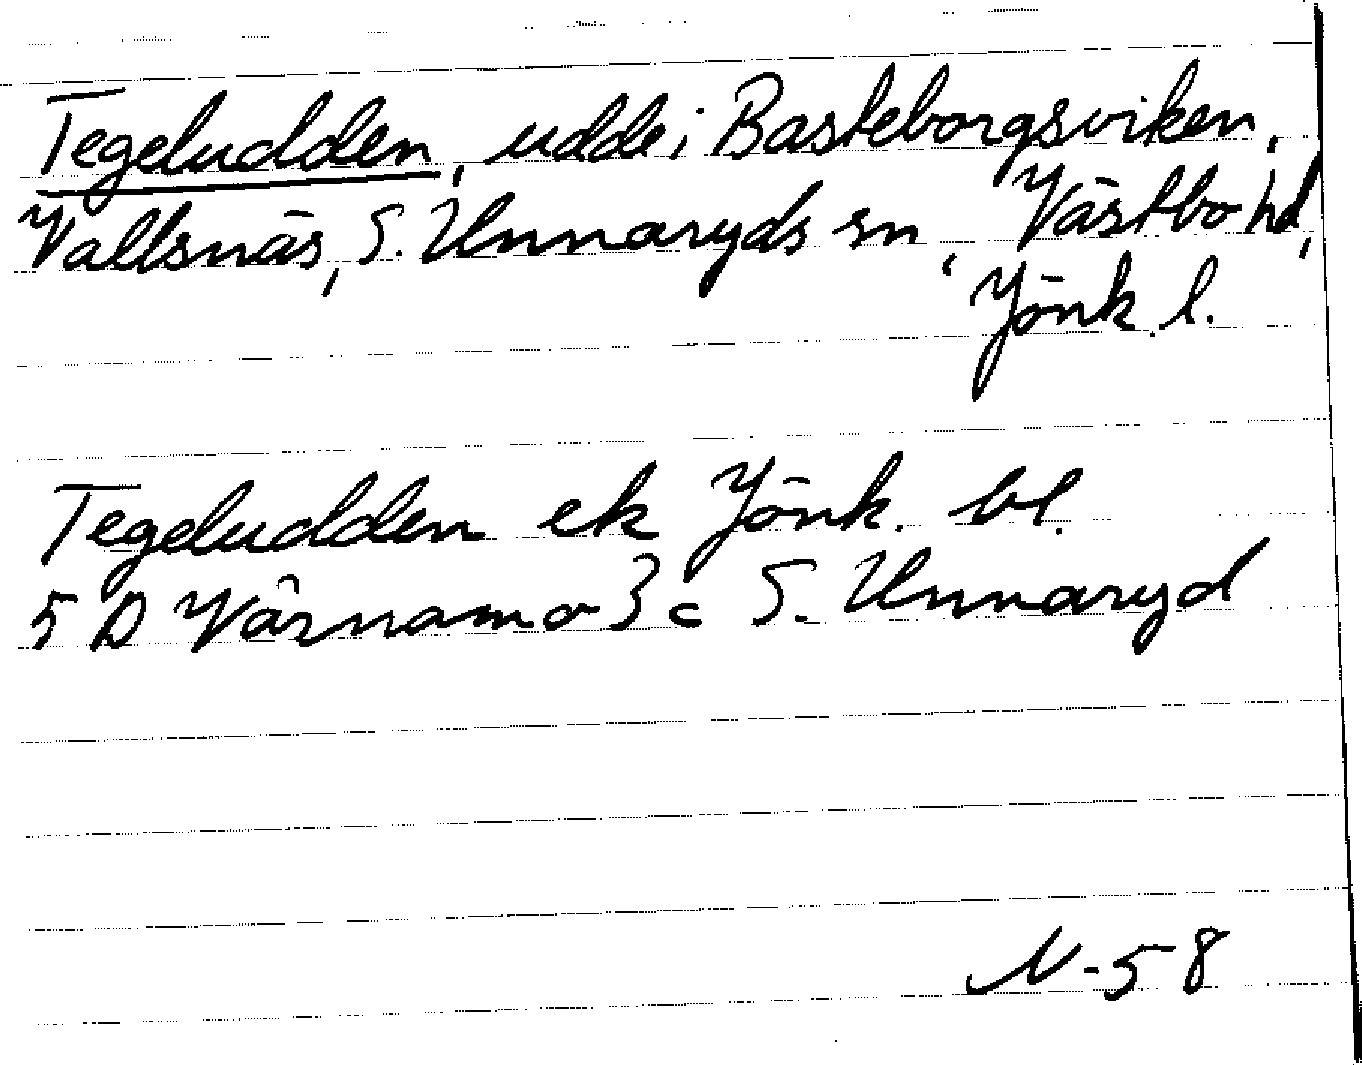 Tegeludden, udde i Basteborgsviken,
Vallsnäs, S. Unnaryds sn, Västbo hd,
Jönk. l.
Tegeludden ek Jönk. bl.
5 D Värnamo 3 c S. Unnaryd
N-58